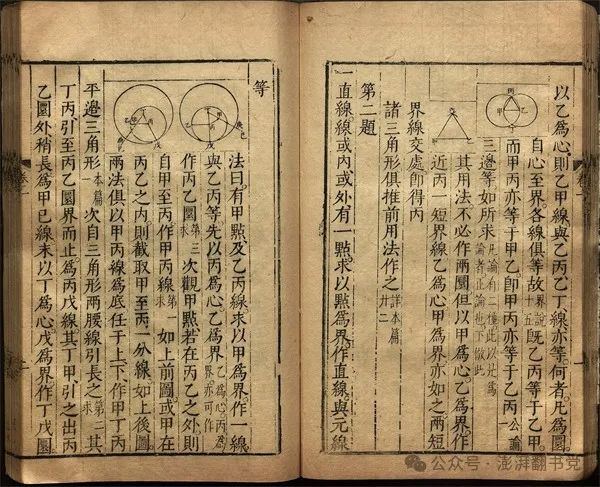 以乙爲心則乙甲線與乙丙乙丁線亦等何者凡爲圜
自心至界各線俱等故界說十五既乙丙等于乙甲
而甲丙亦等于甲乙即甲丙亦等于乙丙公論一
三邊等如所求凡論有二種此以是爲論者正論也下倣此
其用法不必作兩圜但以甲爲心乙爲界作
近丙一短界線乙爲心甲爲界亦如之兩短
界線交處即得丙
諸三角形俱推前用法作之詳本篇廿二
第二題
一直線線或內或外有一點求以點爲界作直線與元線
等
法曰有甲點及乙丙線求以甲爲界作一線
與乙丙等先以丙爲心乙爲界乙爲心丙爲界亦可作
作丙乙圜第三求次觀甲點若在丙乙之外則
自甲至丙作甲丙線第一求如上前圖或甲在
丙乙之內則截取甲至丙一分線如上後圖
兩法俱以甲丙線爲底任于上下作甲丁丙
平邊三角形本篇一次自三角形兩腰線引長之第二求其
丁丙引至丙乙圜界而止爲丙戊線其丁甲引之出丙
乙圜外稍長爲甲己線末以丁爲心戊爲界作丁戊圜
公众号 · 澎湃翻书党